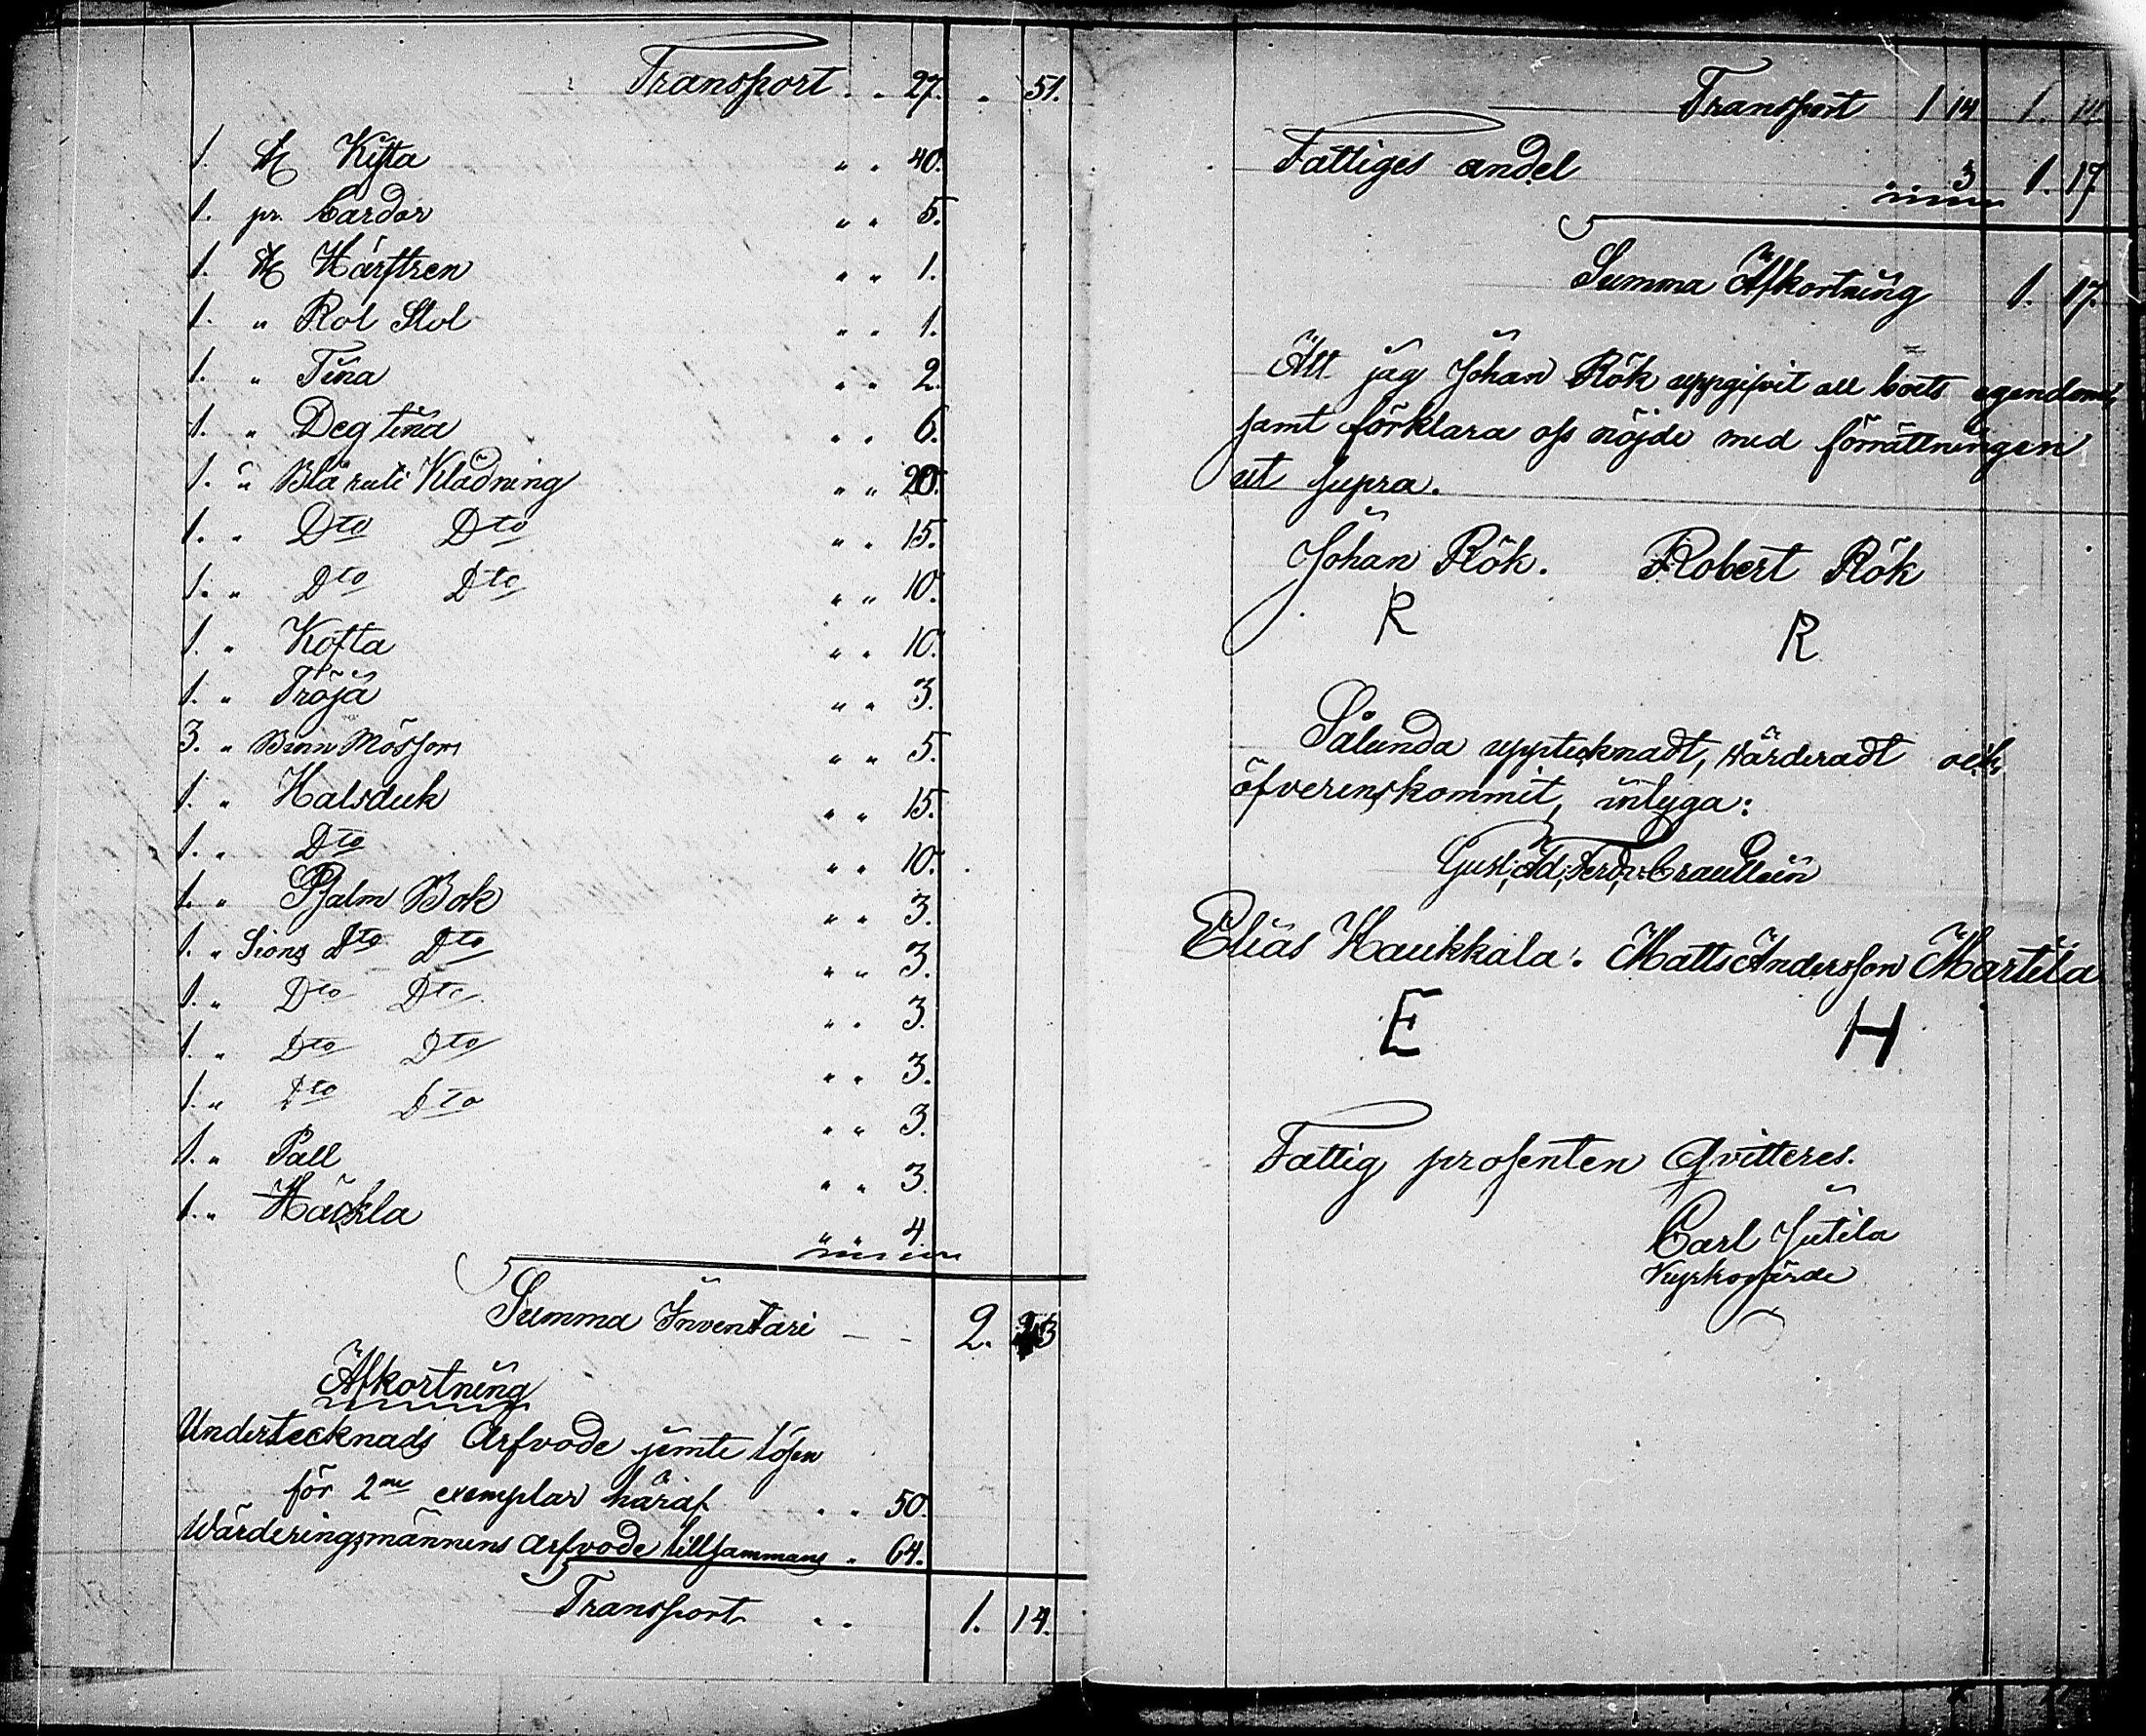 Transport " " 27. " 51.
1. st Kista " " 40.
1. pr. Cardor " " 5.
1. st Härftren " " 1.
1. " Rol Stol " " 1.
1. " Tina " " 2.
1. " Deg tina " " 6.
1. " Blå ruti Klädning " " 20.
1. " Dto Dto " " 15.
1. " Dto Dto " " 10.
1. " Kofta " " 10.
1. " Tröja " " 3.
3. " Binn Mössor " " 5.
1. " Halsduk " " 15.
1. " Dto " " 10.
1. " Psalm Bok " " 3.
1. " Sions Dto Dto " " 3.
1. " Dto Dto " " 3.
1. " Dto Dto " " 3.
1. " Dto Dto " " 3.
1. " Pall " " 3.
1. " Häckla " " 4.
Summa Inventari 2. 23
Afkortning
Undertecknads Arfvode jemte lösen
för 2ne exemplar häraf " " 50.
Wärderingsmännens Arfvode tillsammans " 64.
Transport " " 1. 14.
Transport 1 14 1. 14
Fattiges andel 3 1. 17
Summa Afkortning 1. 17.
Att jag Johan Rök uppgifvit all boets egendom,
samt förklara oss nöjde med förrättningen
ut supra.
Johan Rök. Robert Rök
R R
Sålunda upptecknadt, värderadt och
öfverenskommit, intyga:
Gust. Ad. Ferd.
Elias Haukkala. Matts Andersson Martila
E H
Fattig prosenten Qvitteres.
Carl Jutila